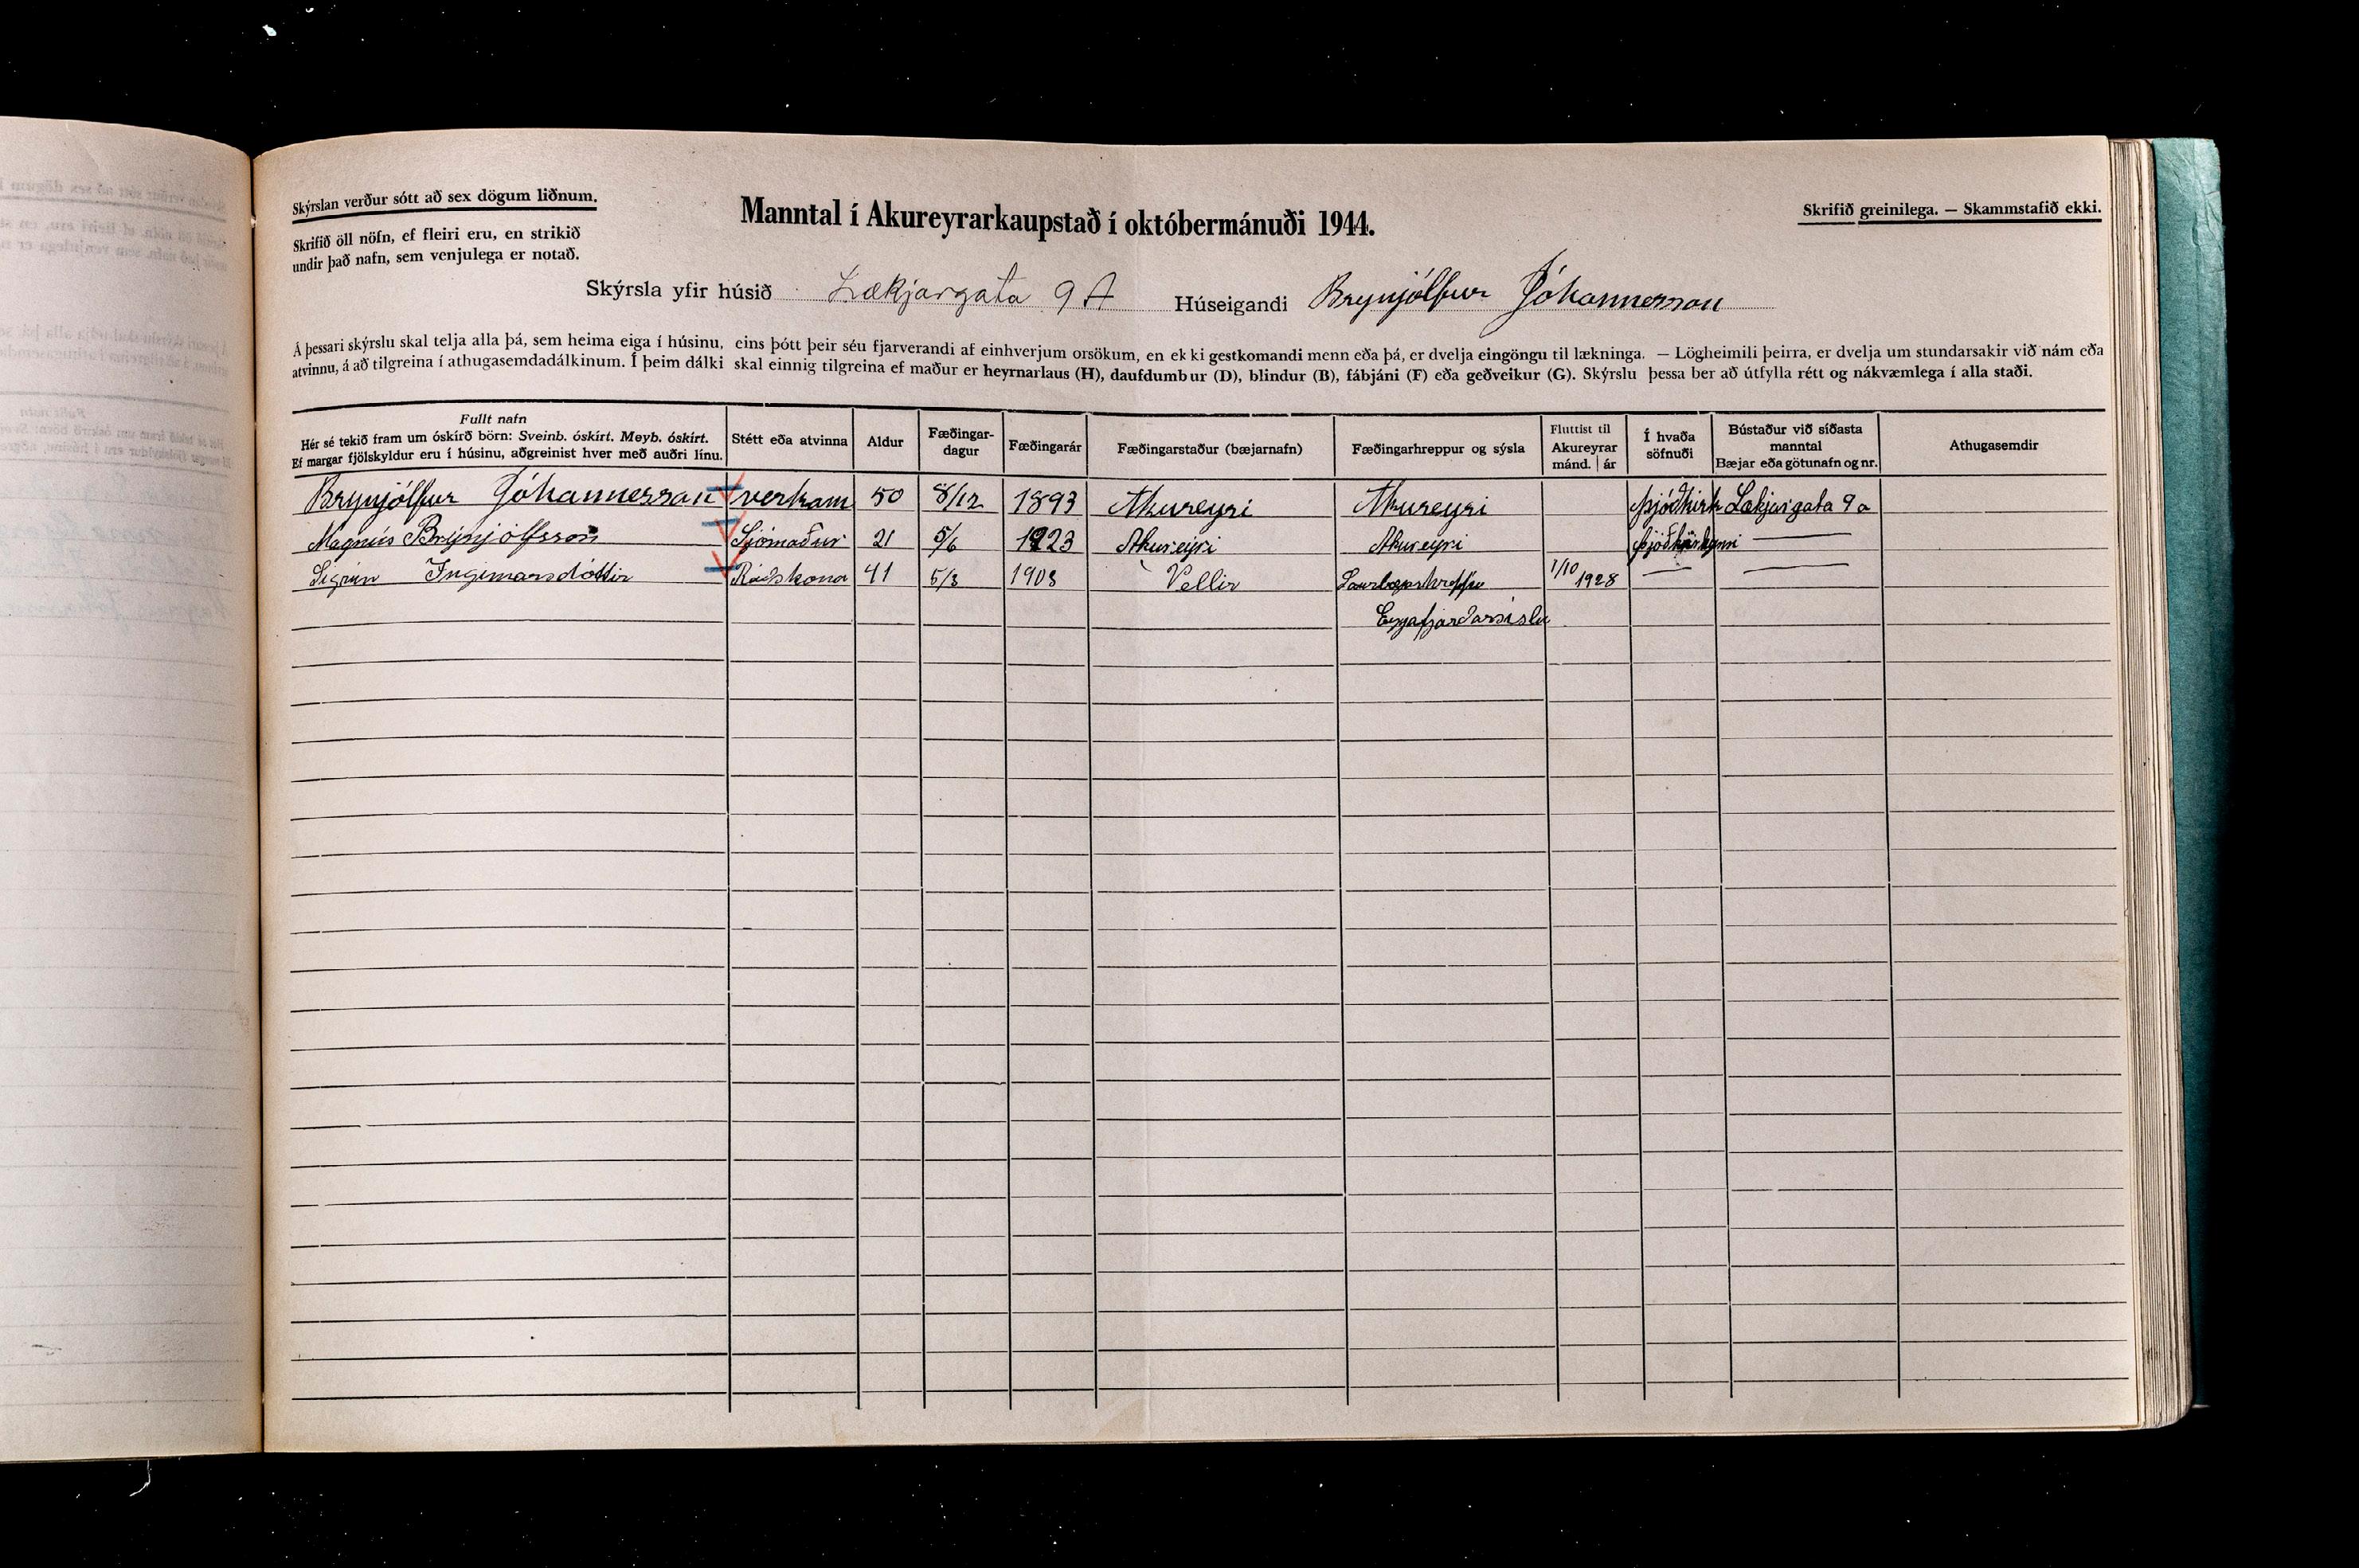 Skýrslan verður sótt að sex dögum liðnum.
Skrifið öll nöfn, ef fleiri eru, en strikið
undir það nafn, sem venjulega er notað.
Manntal í Akureyrarkaupstað í októbermánuði 1944.
Skrifið greinilega. — Skammstafið ekki.
Skýrsla yfir húsið Lækjargata 9A Húseigandi Brynjólfur Jóhannesson
Á þessari skýrslu skal telja alla þá, sem heima eiga í húsinu, eins þótt þeir séu fjarverandi af einhverjum orsökum, en ekki gestkomandi menn eða þá, er dvelja eingöngu til lækninga. — Lögheimili þeirra, er dvelja um stundarsakir við nám eða
atvinnu, á að tilgreina í athugasemdadálkinum. Í þeim dálki skal einnig tilgreina ef maður er heyrnarlaus (H), daufdumbur (D), blindur (B), fábjáni (F) eða geðveikur (G). Skýrslu þessa ber að útfylla rétt og nákvæmlega í alla staði.
Fullt nafn
Hér sé tekið fram um óskírð börn: Sveinb. óskírt. Meyb. óskírt.
Ef margar fjölskyldur eru í húsinu, aðgreinist hver með auðri línu.
Stétt eða atvinna
Aldur
Fæðingar-
dagur
Fæðingarár
Fæðingarstaður (bæjarnafn)
Fæðingarhreppur og sýsla
Fluttist til
Akureyrar
mánd. | ár
Í hvaða
söfnuði
Bústaður við síðasta
manntal
Bæjar eða götunafn og nr.
Athugasemdir
Brynjólfur Jóhannesson verkam 50 8/12 1893 Akureyri Akureyri Þjóðkirk Lækjargata 9a
Magnús Brynjólfsson Sjómaður 21 5/6 1923 Akureyri Akureyri Þjóðkirkjunni —
Sigrún Ingimarsdóttir Ráðskona 41 5/3 1903 Vellir Saurbæjarhreppu 1/10 1928 — —
Eyjafjarðarsíslu